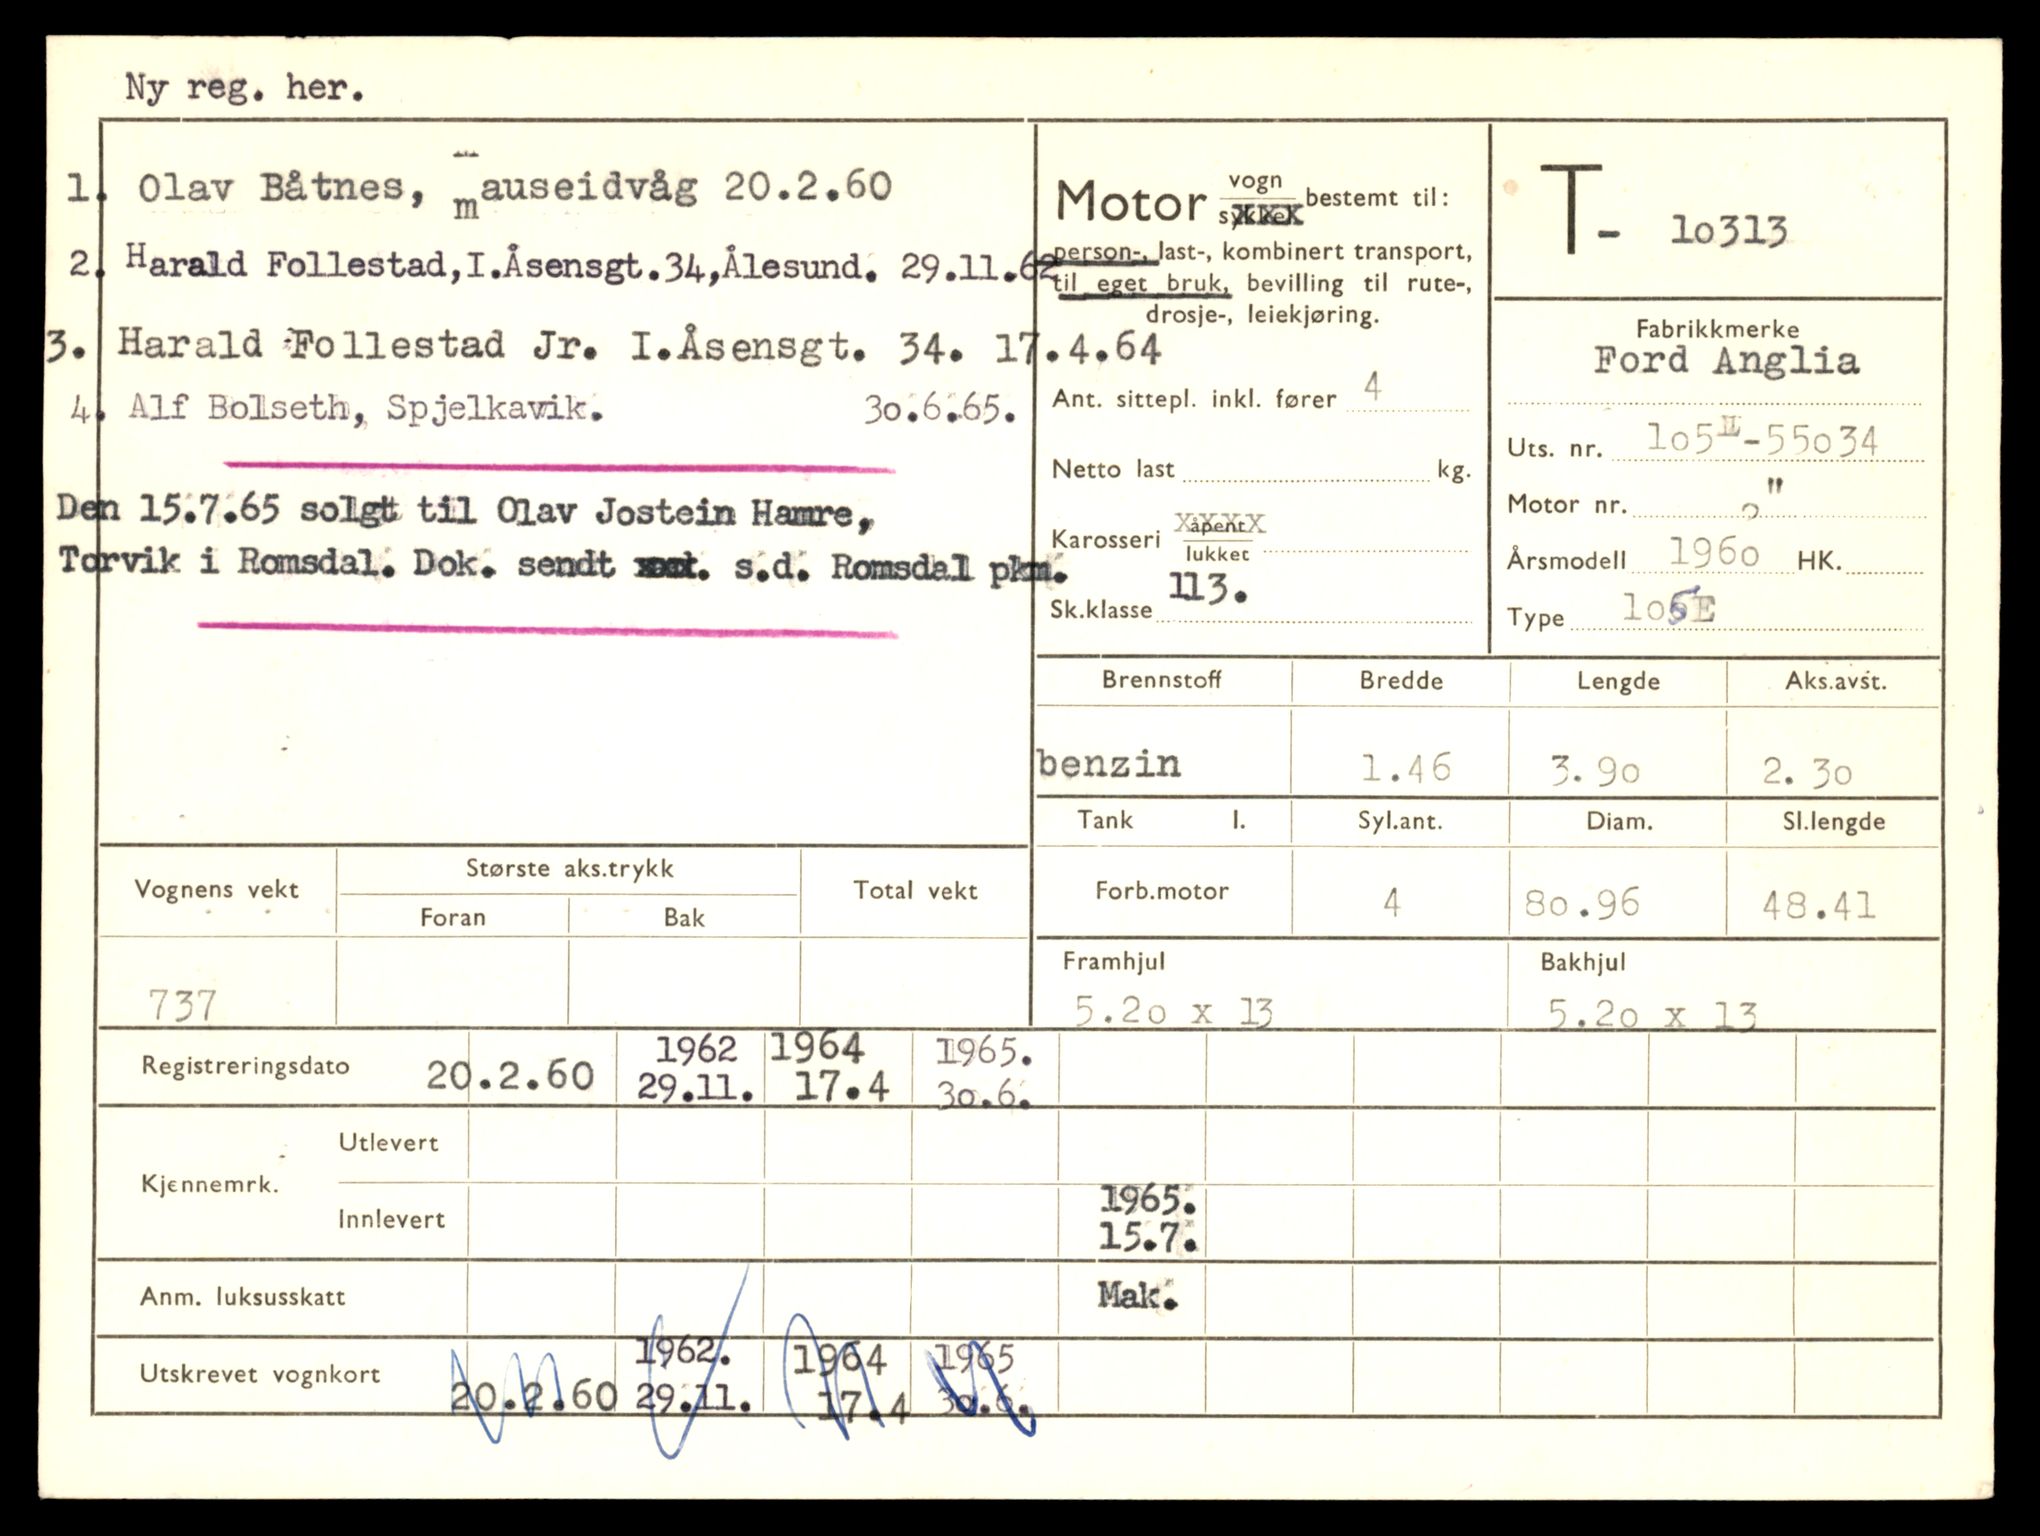 Ny reg. her.
1. Olav Båtnes, mauseidvåg 20.2.60
2. Harald Follestad, I.Åsensgt.34, Ålesund. 29.11.62
3. Harald Follestad Jr. I.Åsensgt. 34. 17.4.64
4. Alf Bolseth, Spjelkavik. 3o.6.65.
Den 15.7.65 solgt til Olav Jostein Hamre,
Torvik i Romsdal. Dok. sendt s.d. Romsdal pkm.
Motor vogn sykkel bestemt til:
person-, last-, kombinert transport,
til eget bruk, bevilling til rute-,
drosje-, leiekjøring.
Ant. sittepl. inkl. fører 4
Netto last kg.
Karosseri åpent
lukket
Sk.klasse 113.
T- 1o313
Fabrikkmerke
Ford Anglia
Uts. nr. 1o5E-55o34
Motor nr. "
Årsmodell 196o HK.
Type 1o5E
Brennstoff Bredde Lengde Aks.avst.
benzin 1.46 3.9o 2.3o
Tank l. Syl.ant. Diam. Sl.lengde
Forb.motor 4 8o.96 48.41
Framhjul Bakhjul
5.2o x 13 5.2o x 13
Vognens vekt Største aks.trykk Total vekt
Foran Bak
737
Registreringsdato 20.2.60 1962 29.11. 1964 17.4 1965. 3o.6.
Kjennemrk. Utlevert
Innlevert 1965. 15.7.
Anm. luksusskatt Mak.
Utskrevet vognkort 20.2.60 1962. 29.11. 1964 17.4 1965 3o.6.